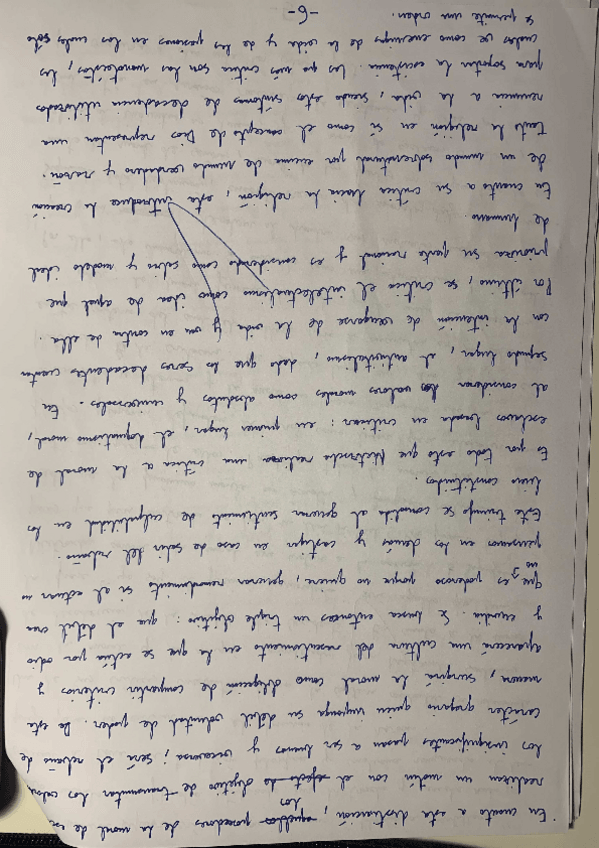 En cuanto a esta distinción, los poseedores de la moral de es
realizan un motín con el objetivo de transmutar los valores
los insignificantes pasan a ser buenos y viceversa; será el rebaño de
carácter gregario quien imponga su débil voluntad de poder. De esta
manera, surgirá la moral como obligación de compartir criterios y
aparecerá una cultura del resentimiento en la que se actúa por odio
y envidia. Se busca entonces un triple objetivo: que el débil crea
que es poderoso porque no quiere, generar remordimiento si al actuar no
no
pensamos en los demás y castigar en caso de salir del rebaño.
Este triunfo se consolida al generar sentimiento de culpabilidad en los
bien constituidos.
Es por todo esto que Nietzsche realiza una crítica a la moral de
esclavos basada en criticar: en primer lugar, el dogmatismo moral,
al considerar los valores morales como absolutos y universales. En
segundo lugar, el antivitalismo, dado que los seres decadentes cuentan
con la intención de vengarse de la vida y van en contra de ella.
Por último, se critica el intelectualismo como idea de aquel que
prioriza su parte racional y es considerado como sabio y modelo ideal
de humano.
En cuanto a su crítica hacia la religión, esta introduce la creación
de un mundo sobrenatural por encima de mundo verdadero y razón.
Tanto la religión en sí como el concepto de Dios representan una
renuncia a la vida, siendo estos síntomas de decadencia utilizados
para soportar la existencia. Los que más critica son los monoteístas, los
cuales ve como enemigos de la vida y de las pasiones en los cuales solo
se permite una orden.
-6-